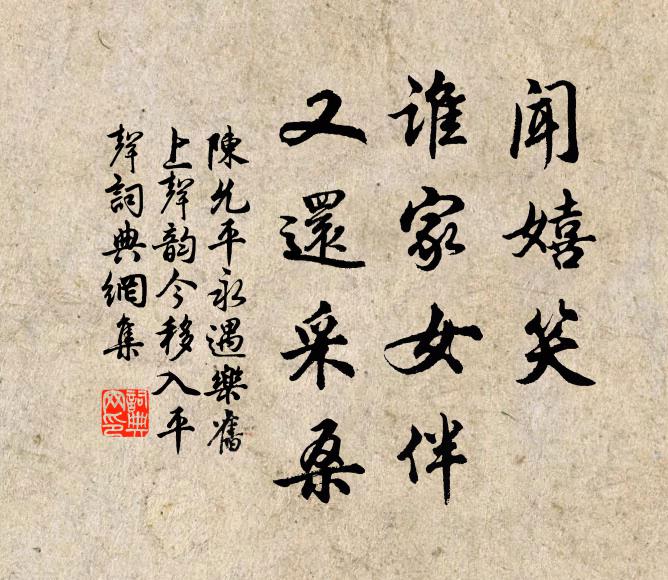 闻嬉笑
谁家女伴
又還采桑
陳允平永遇樂舊
上聲韵今移入平
聲詞典網集
詞典
网印